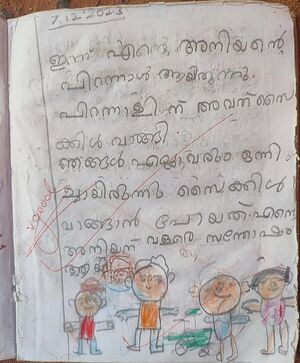 7.12.2023
ഇന്ന് എന്റെ അനിയന്റെ
പിറന്നാൾ ആയിരുന്നു.
പിറന്നാളിന് അവന് സൈ
ക്കിൾ വാങ്ങി.
ഞങ്ങൾ എല്ലാവരും ഒന്നി
ച്ചായിരുന്നു സൈക്കിൾ
വാങ്ങാൻ പോയത് എന്റെ
അനിയന് വളരെ സന്തോഷം
ആയി